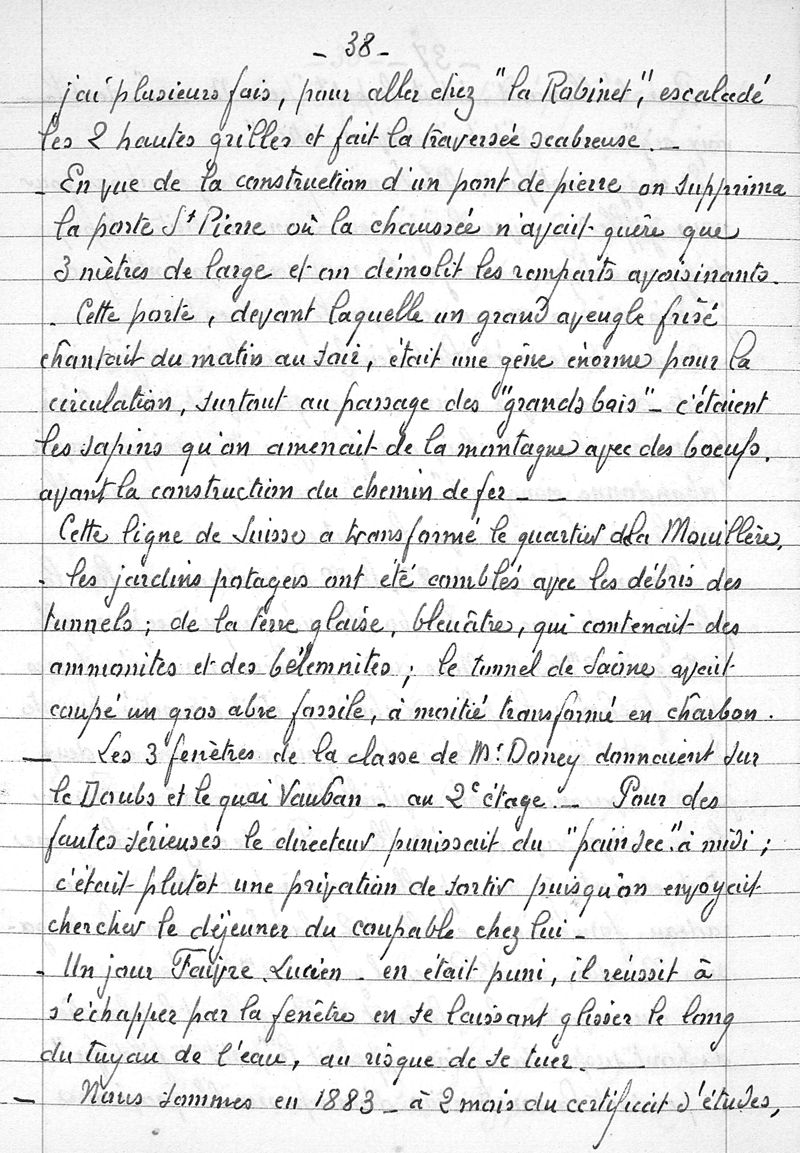 - 38 -
j'ai plusieurs fois, pour aller chez "la Robinet", escaladé
les 2 hautes grilles et fait la traversée scabreuse. _
- En vue de la construction d'un pont de pierre on supprima
la porte St Pierre où la chaussée n'avait guère que
3 mètres de large et on démolit les remparts avoisinants.
- Cette porte, devant laquelle un grand aveugle frisé
chantait du matin au soir, était une gêne énorme pour la
circulation, surtout au passage des "grands bois" - c'étaient
les sapins qu'on amenait de la montagne avec des boeufs.
avant la construction du chemin de fer - -
Cette ligne de Suisse a transformé le quartier de la Mouillère.
- les jardins potagers ont été comblés avec les débris des
tunnels ; de la terre glaise, bleuâtre, qui contenait des
ammonites et des bélemnites ; le tunnel de Saône avait
coupé un gros abre fossile, à moitié transformé en charbon.
— Les 3 fenêtres de la classe de Mr Doney donnaient sur
le Doubs et le quai Vauban - au 2e étage. - Pour des
fautes sérieuses le directeur punissait du "pain sec" à midi ;
c'était plutot une privation de sortir puisqu'on envoyait
chercher le déjeuner du coupable chez lui -
- Un jour Faivre Lucien - en était puni, il réussit à
s'échapper par la fenêtre en se laissant glisser le long
du tuyau de l'eau, au risque de se tuer. —
— Nous sommes en 1883 - à 2 mois du certificat d'études,